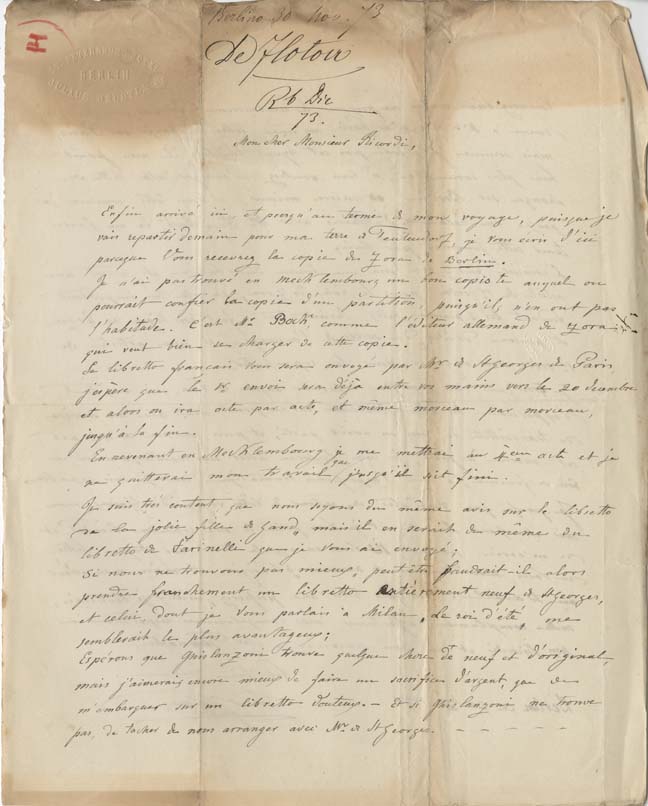 H
BERLIN
Berlino 30 Nov. 73
De Flotow
Rb Dic
73.
Mon cher Monsieur Ricordi,
Enfin arrivé ici, et presqu'au terme de mon voyage, puisque je
vais repartir demain pour ma terre de Teutendorf, je vous écris d'ici
parceque Vous recevrez la copie de Zora de Berlin.
Je n'ai pas trouvé en Mecklembourg un bon copiste auquel on
pourrait confier la copie d'une partition, puisqu'ils n'en ont pas
l'habitude. C'est Mr. Bock, comme l'éditeur allemand de Zora,
qui veut bien se charger de cette copie.
Le libretto français Vous sera envoyé par Mr. de St Georges de Paris
j'espère que le 1er envoi sera déjà entre vos mains vers le 20 decembre
et alors on ira acte par acte, et même morceau par morceau,
jusqu'à la fin.
En revenant en Mecklembourg je me mettrai au 4eme acte et je
ne quitterai mon travail que jusqu'il soit fini.
Je suis très content que nous soyons du même avis sur le libretto
de la jolie fille de Gand, mais il en serait de même du
libretto de Farinelli que je Vous ai envoyé;
Si nous ne trouvons pas mieux, peut être faudrait-il alors
prendre franchement un libretto entièrement neuf de St Georges,
et celui, dont je Vous parlais à Milan, Le roi d'été, me
semblerait le plus avantageux;
Espérons que Ghislanzoni trouve quelque chose de neuf et d'original,
mais j'aimerais encore mieux de faire un sacrifice d'argent, que de
m'embarquer sur un libretto douteux. – et si Ghislanzoni ne trouve
pas, de tacher de nous arranger avec Mr. de St Georges. – – – – –